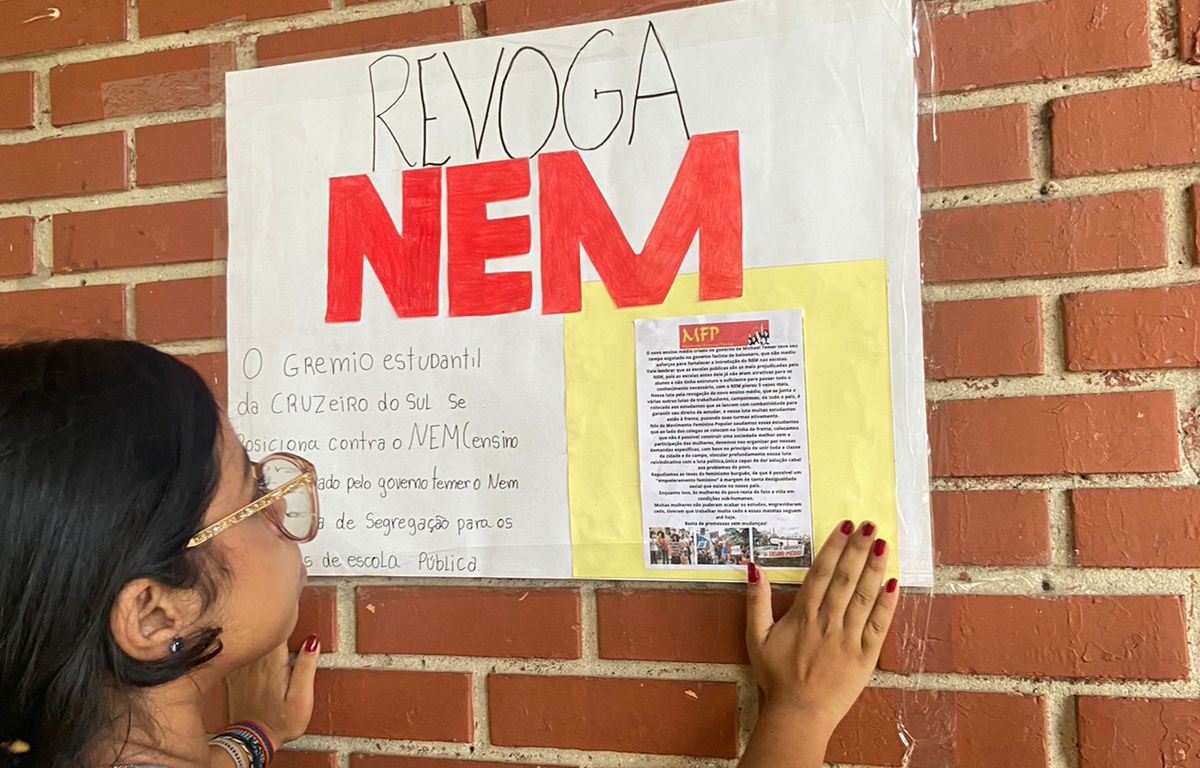 REVOGA
NEM
O GREMIO estudantil
da CRUZeiRO do SUL Se
Posiciona contra o NEM(ensino
pelo governo temer o Nem
de Segregação para os
de escola PÚblica
MFP
O novo ensino médio criado no governo de Michael Temer teve seu
tempo esgotado no governo facista de bolsonaro, que não mediu
esforços para fortalecer a introdução do NEM nas escolas.
Vale lembrar que as escolas publicas são as mais prejudicadas pelo
NEM, pois as escolas antes dele já não eram atrativas para os
alunos e não tinha estrutura o suficiente para passar todo o
conhecimento necessário, com o NEM piorou 3 vezes mais.
Nessa luta pela revogação do novo ensino médio, que se junta a
várias outras lutas de trabalhadores, camponeses, de todo o país, é
colocado aos estudantes que se lancem com combatividade para
garantir seu direito de estudar, e nessa luta muitas estudantes
estão à frente, puxando suas turmas ativamente.
Nós do Movimento Feminino Popular saudamos essas estudantes
que ao lado dos colegas se colocam na linha de frente, colocamos
que não é possível construir uma sociedade melhor sem a
participação das mulheres, devemos nos organizar por nossas
demandas específicas, com base no princípio de unir toda a classe
da cidade e do campo, vincular profundamente nossa luta
reivindicativa com a luta política,única capaz de dar solução cabal
aos problemas do povo.
Repudiamos as teses do feminismo burguês, de que é possível um
"empoderamento feminino" à margem de tanta desigualdade
social que existe no nosso país.
Enquanto isso, às mulheres do povo resta de fato a vida em
condições sub-humanas.
Muitas mulheres não puderam acabar os estudos, engravidaram
cedo, tiveram que trabalhar muito cedo e essas mazelas seguem
até hoje.
Basta de promessas sem mudanças!